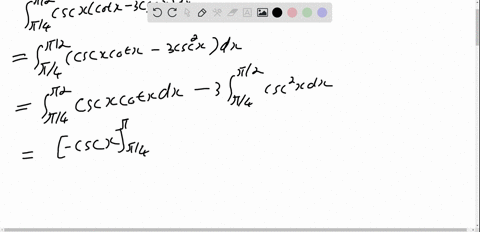 ∫_{π/4}^{π/2} csc x (cot x - 3csc
= ∫_{π/4}^{π/2} (csc x cot x - 3csc²x) dx
= ∫_{π/4}^{π/2} csc x cot x dx - 3 ∫_{π/4}^{π/2} csc²x dx
= [-csc x]_{π/4}^{π}